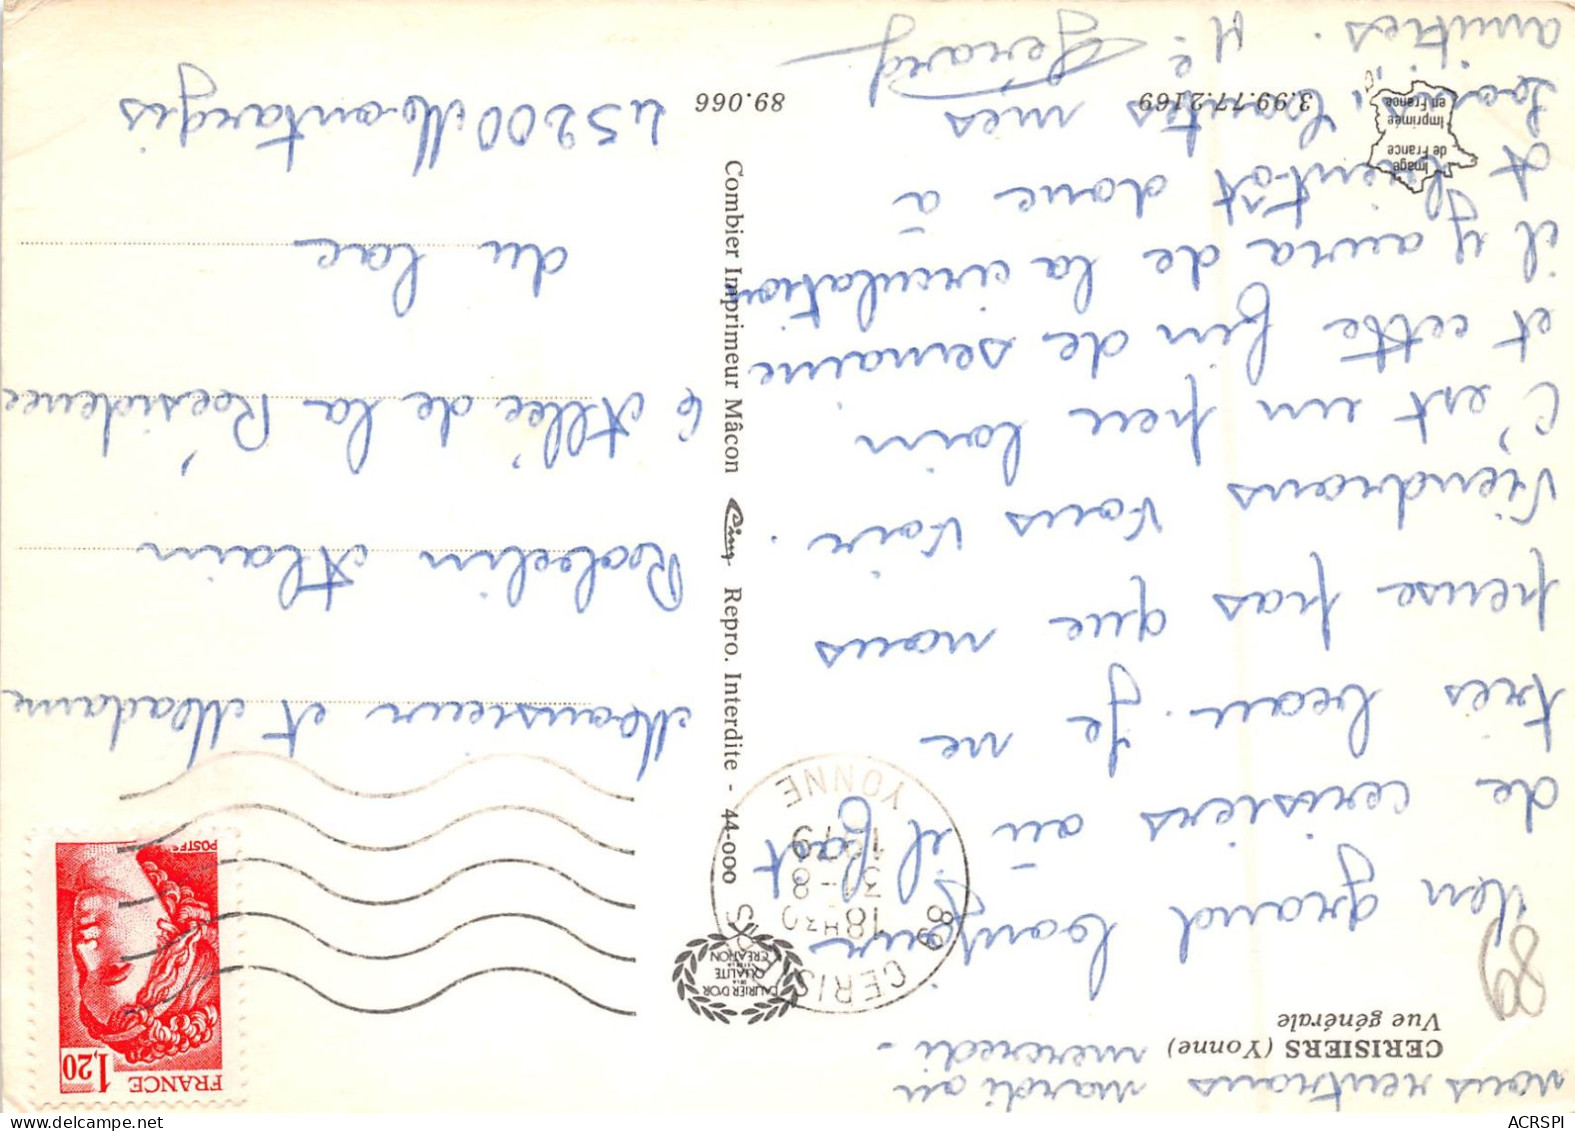 nous rentrons mardi ou
mercredi -
CERISIERS (Yonne)
Vue générale
89
Un grand bonjour
de cerisiers où il fait
très beau. Je ne
pense pas que nous
viendrons vous voir.
C'est un peu loin
et cette fin de semaine
il y aura de la circulation
A bientôt donc à
tous, toutes mes
amitiés. Me Gérard
Image
de France
Imprimée
en France
3.99.77.2169
89.066
Combier Imprimeur Mâcon Cim Repro. Interdite - 44-000
LAURIER D'OR
DE LA
QUALITE
ET DE LA
CREATION
89 CERISIERS
18H30
13 - 8
1979
YONNE
FRANCE
1,20
POSTES
Monsieur et Madame
Alain
6 Allée de la Résidence
du lac
45200 Montargis
ACRSPI